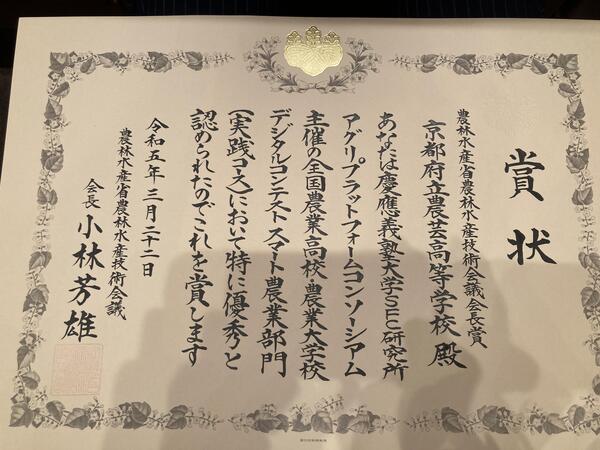 賞状
農林水産省農林水産技術会議会長賞
京都府立農芸高等学校 殿
あなたは慶應義塾大学SFC研究所
アグリプラットフォームコンソーシアム
主催の全国農業高校・農業大学校
デジタルコンテスト スマート農業部門
(実践コース)において特に優秀と
認められたのでこれを賞します
令和五年三月二十二日
農林水産省農林水産技術会議
会長 小林芳雄